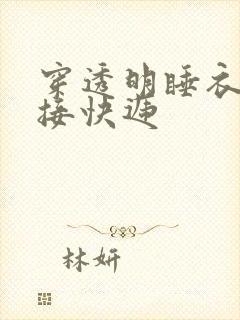 穿透明睡衣
接快递
林妍